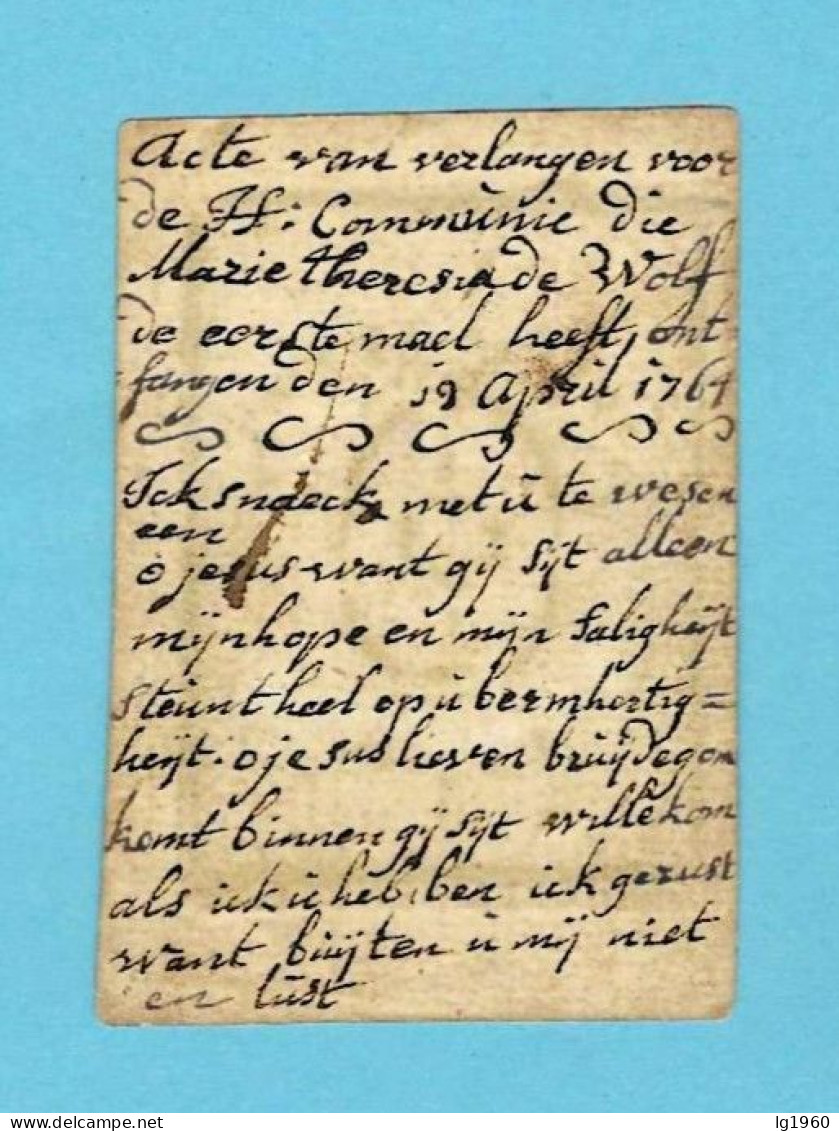 Acte van verlangen voor
de H: Communie die
Marie theresia de Wolf
de eerste mael heeft ont
fangen den 19 April 1764
Ick snaeck met ù te wesen
een
o jesus want gij sijt alleen
mijn hope en mijn saligheijt
steùnt heel op ù bermhertig=
heijt. o jesus lieven brùijdegom
komt binnen gij sijt willekom
als ick ù heb, ben ick gerust
want bùijten ù mij niet
en lùst
lg1960